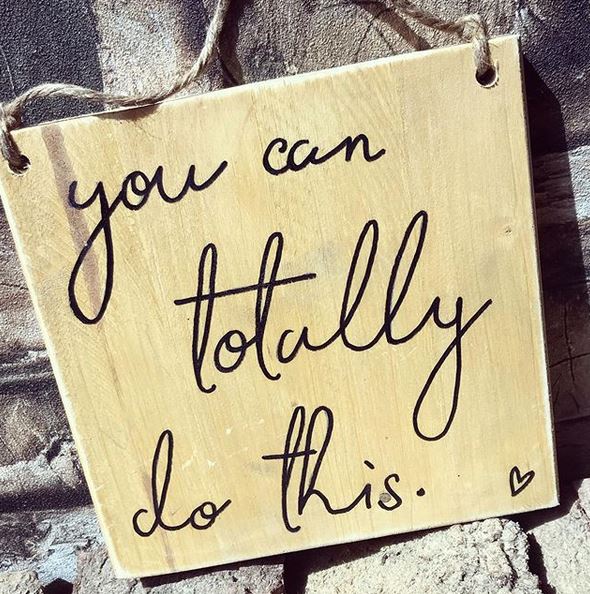 you can
totally
do this.